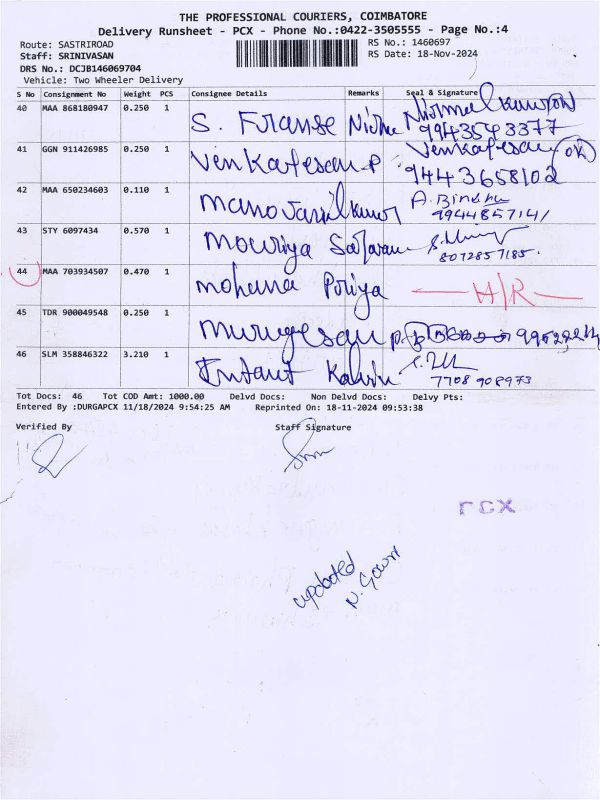 THE PROFESSIONAL COURIERS, COIMBATORE
Delivery Runsheet - PCX - Phone No.:0422-3505555 - Page No.:4
Route: SASTRIROAD RS No.: 1460697
Staff: SRINIVASAN RS Date: 18-Nov-2024
DRS No.: DCJB146069704
Vehicle: Two Wheeler Delivery
S No Consignment No Weight PCS Consignee Details Remarks Seal & Signature
40 MAA 868180947 0.250 1 S. Franse Nirmalkumar
9943543377
41 GGN 911426985 0.250 1 Venkatesan P Venkatesan
9443658102
42 MAA 650234603 0.110 1 A. Bindhu
9944857141
43 STY 6097434 0.570 1 Mowriya
8072857185.
44 MAA 703934507 0.470 1 mohana Priya H/R
45 TDR 900049548 0.250 1 Murugesan P.
46 SLM 358846322 3.210 1
7708908973
Tot Docs: 46 Tot COD Amt: 1000.00 Delvd Docs: Non Delvd Docs: Delvy Pts:
Entered By :DURGAPCX 11/18/2024 9:54:25 AM Reprinted On: 18-11-2024 09:53:38
Verified By Staff Signature
PCX
updated
N. Gowri